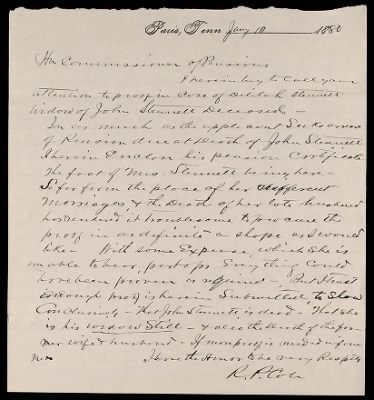 Paris, Tenn Jany 10 1880
Hon Commissioner of Pensions
I herein beg to call your
attention to proof in Case of Delilah Stennett
Widow of John Stennett Deceased -
In as much as the applicant Seeks arrears
of Pension due at Death of John Stennett
I herein Enclose his pension Certificate
The fact of Mrs. Stennett being here -
So far from the place of her different
Marriages & the Death of her late husband
has rendered it troublesome to procure the
proof in as definite a shape as I would
like - With some Expense, which She is
unable to bear, perhaps Everything Could
have been proven as required - But I trust
enough proof is herein Submitted to Show
Conclusively - That John Stennett is dead - That She
is his widow Still - & also the Death of the for
mer wife & husband - If more proof is needed inform
me I have the Honor to be very Respty
R. P. Cole